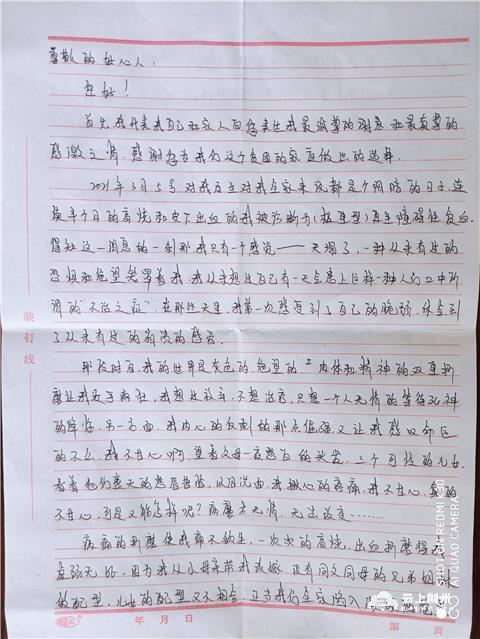 尊敬的好心人:
您好!
首先,我代表我自己和家人向您表达我最诚挚的谢意和最真挚的
感激之情,感谢您为我们这个贫困的家庭做出的选择.
2021年3月5号对我乃至对我全家来说都是个阴暗的日子,连
续半个月的高烧和皮下出血的我被诊断为(极重型)再生障碍性贫血.
得知这一消息的一刹那我只有一个感觉——天塌了,一种从未有过的
恐惧和绝望笼罩着我,我从未想过自己有一天会患上这样一种人们口中所
谓的"不治之症",在那些天里,我第一次感受到了自己的脆弱,体会到
了从未有过的崩溃的感觉.
那段时间,我的世界是灰色的,绝望的,肉体和精神的双重折
磨让我近乎疯狂,我想过放弃,不想治疗,只想一个人无情的等待死神
的降临,另一方面,我内心的反抗的那点倔强又让我感叹命运
的不公,我不甘心啊,望着父母一夜愁白的头发,三个可怜的儿女,
看着他们整天的愁眉苦脸,以泪洗面,我揪心的疼痛,我不甘心,真的
不甘心,可是又能怎样呢?病魔太无情,无法改变………
病痛的折磨使我痛不欲生,一次次的高烧,出血折磨得
虚弱无比,因为我从小母亲带我改嫁,没有同父同母的兄弟姐
做配型,儿女的配型又不相合,正当我们全家陷入
装订线
年 月 日
第 页
SHOT ON REDMI K30
AI QUAD CAMERA
云上